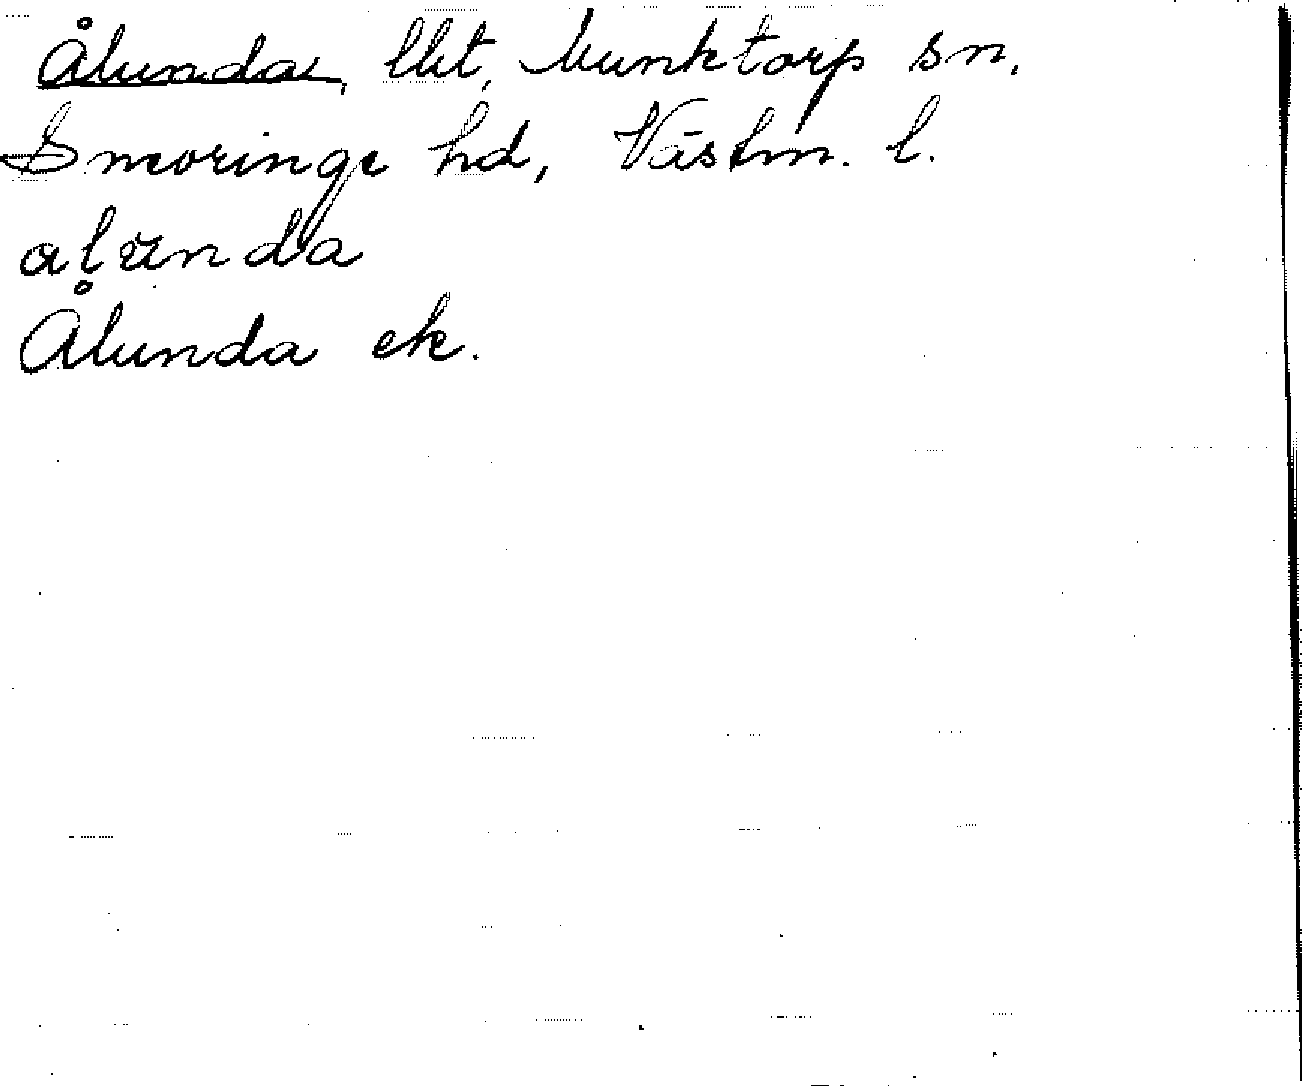 Ålunda, lht, Munktorp sn,
Snevringe hd, Västm. l.
alunda
Ålunda ek.